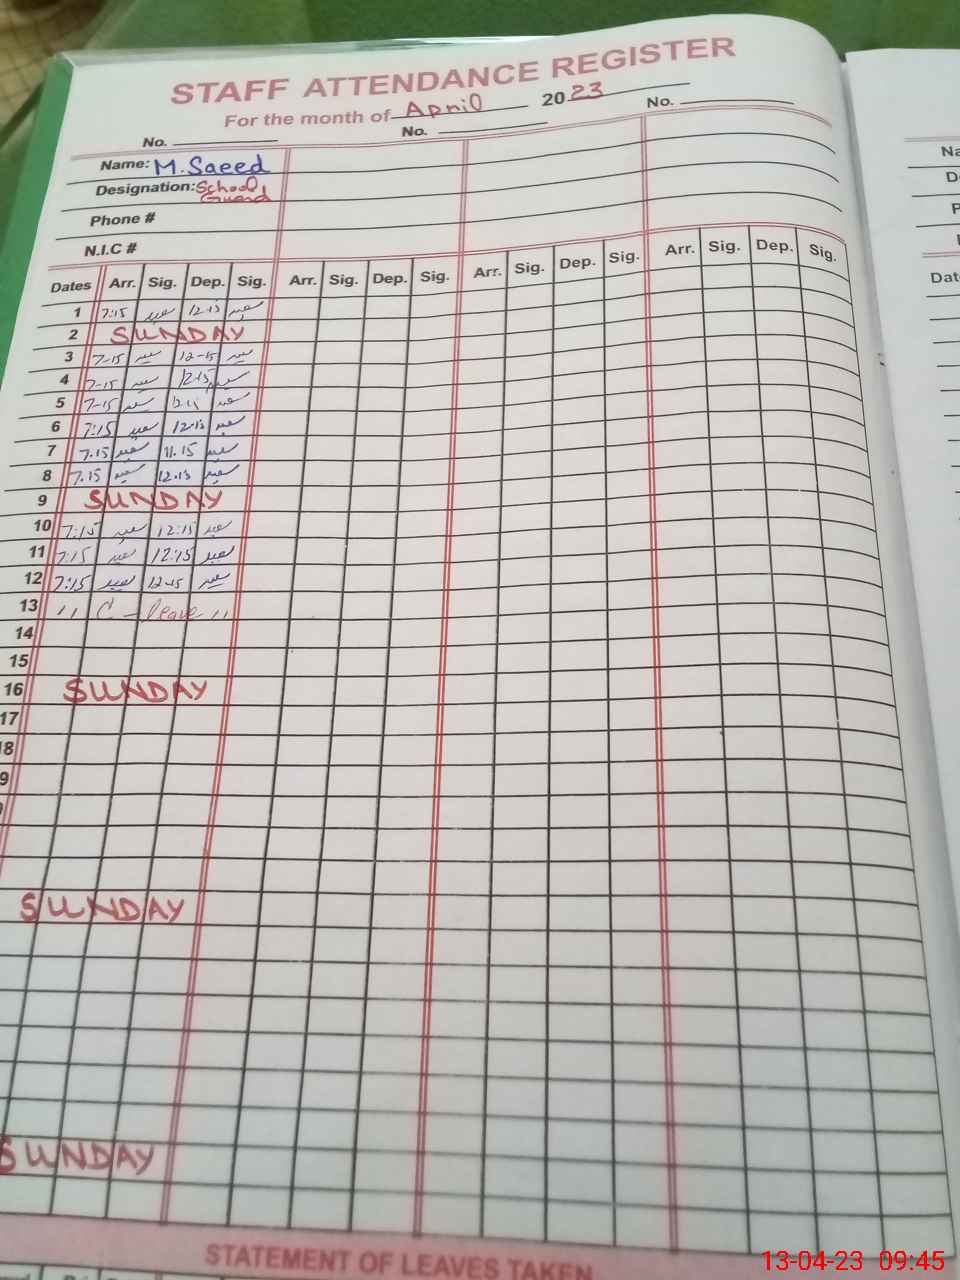 STAFF ATTENDANCE REGISTER
For the month of April 2023
No. No. No.
Name: M. Saeed
Designation: School Guard
Phone #
N.I.C #
Dates Arr. Sig. Dep. Sig. Arr. Sig. Dep. Sig. Arr. Sig. Dep. Sig. Arr. Sig. Dep. Sig.
1 7:15 سعید 12-15 سعید
2 SUNDAY
3 7-15 سعید 12-15 سعید
4 7-15 سعید 12-15 سعید
5 7-15 سعید سعید
6 7:15 سعید 12-15 سعید
7 7.15 سعید 11.15 سعید
8 7.15 سعید 12.15 سعید
9 SUNDAY
10 7:15 سعید 12:15 سعید
11 7:15 سعید 12:15 سعید
12 7:15 سعید 12-15 سعید
13 " C - leave "
14
15
16 SUNDAY
17
8
9
SUNDAY
SUNDAY
STATEMENT OF LEAVES TAKEN
13-04-23 09:45